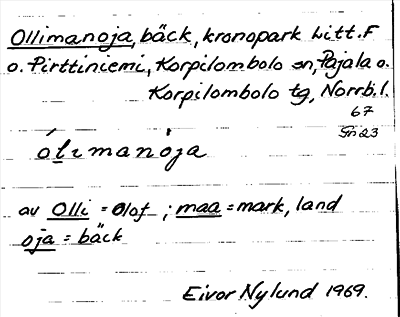 Ollimanoja, bäck, kronopark Litt. F
o. Pirttiniemi, Korpilombolo sn, Pajala o.
Korpilombolo tg, Norrb. l.
67
óllmanòja
av Olli = Olof ; maa = mark, land
oja = bäck
Eivor Nylund 1969.